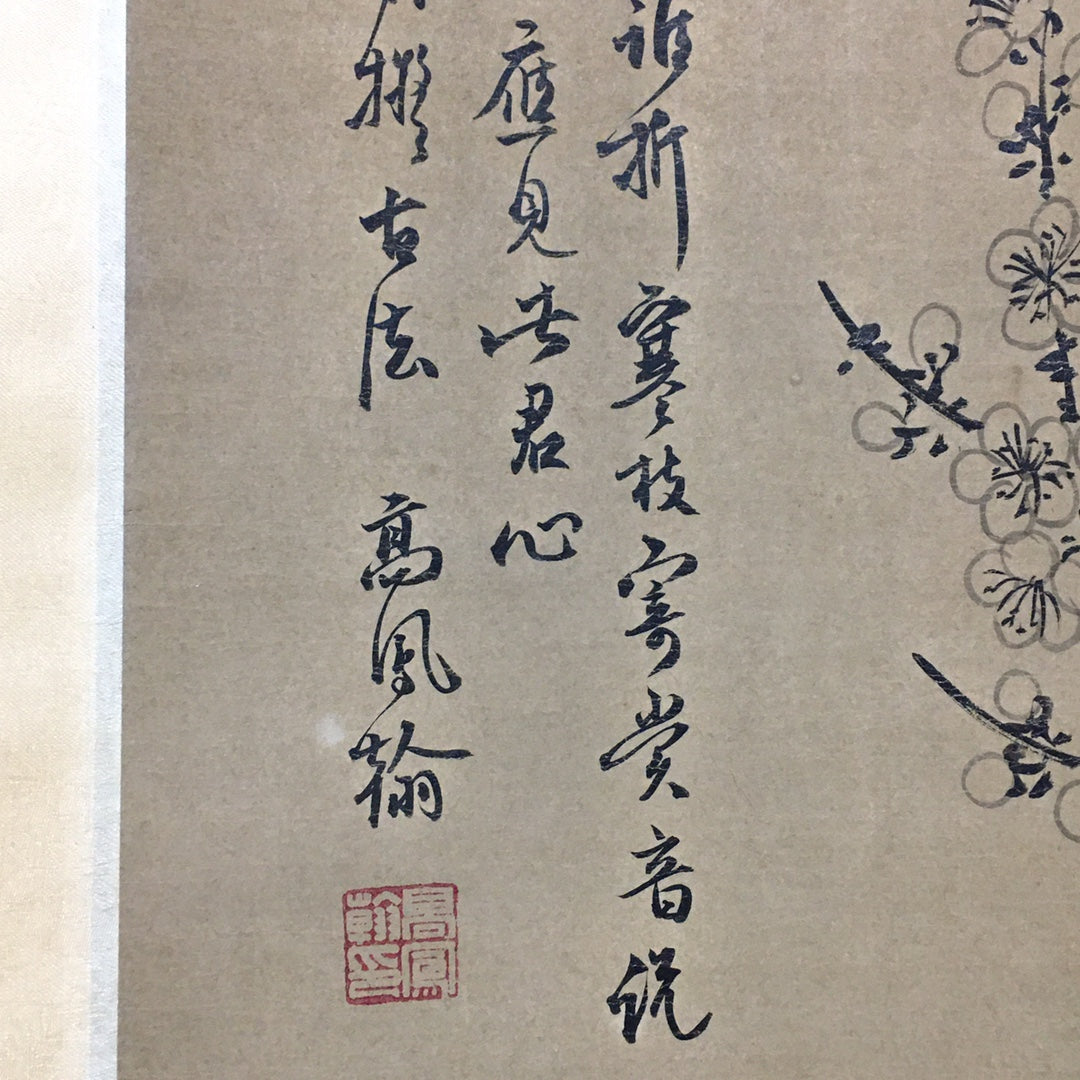 誰折寒枝寄賞音
應見此君心
擬古法 高鳳翰
高鳳翰印